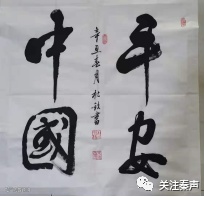 平安
中國
辛丑春月 書
关注秦声